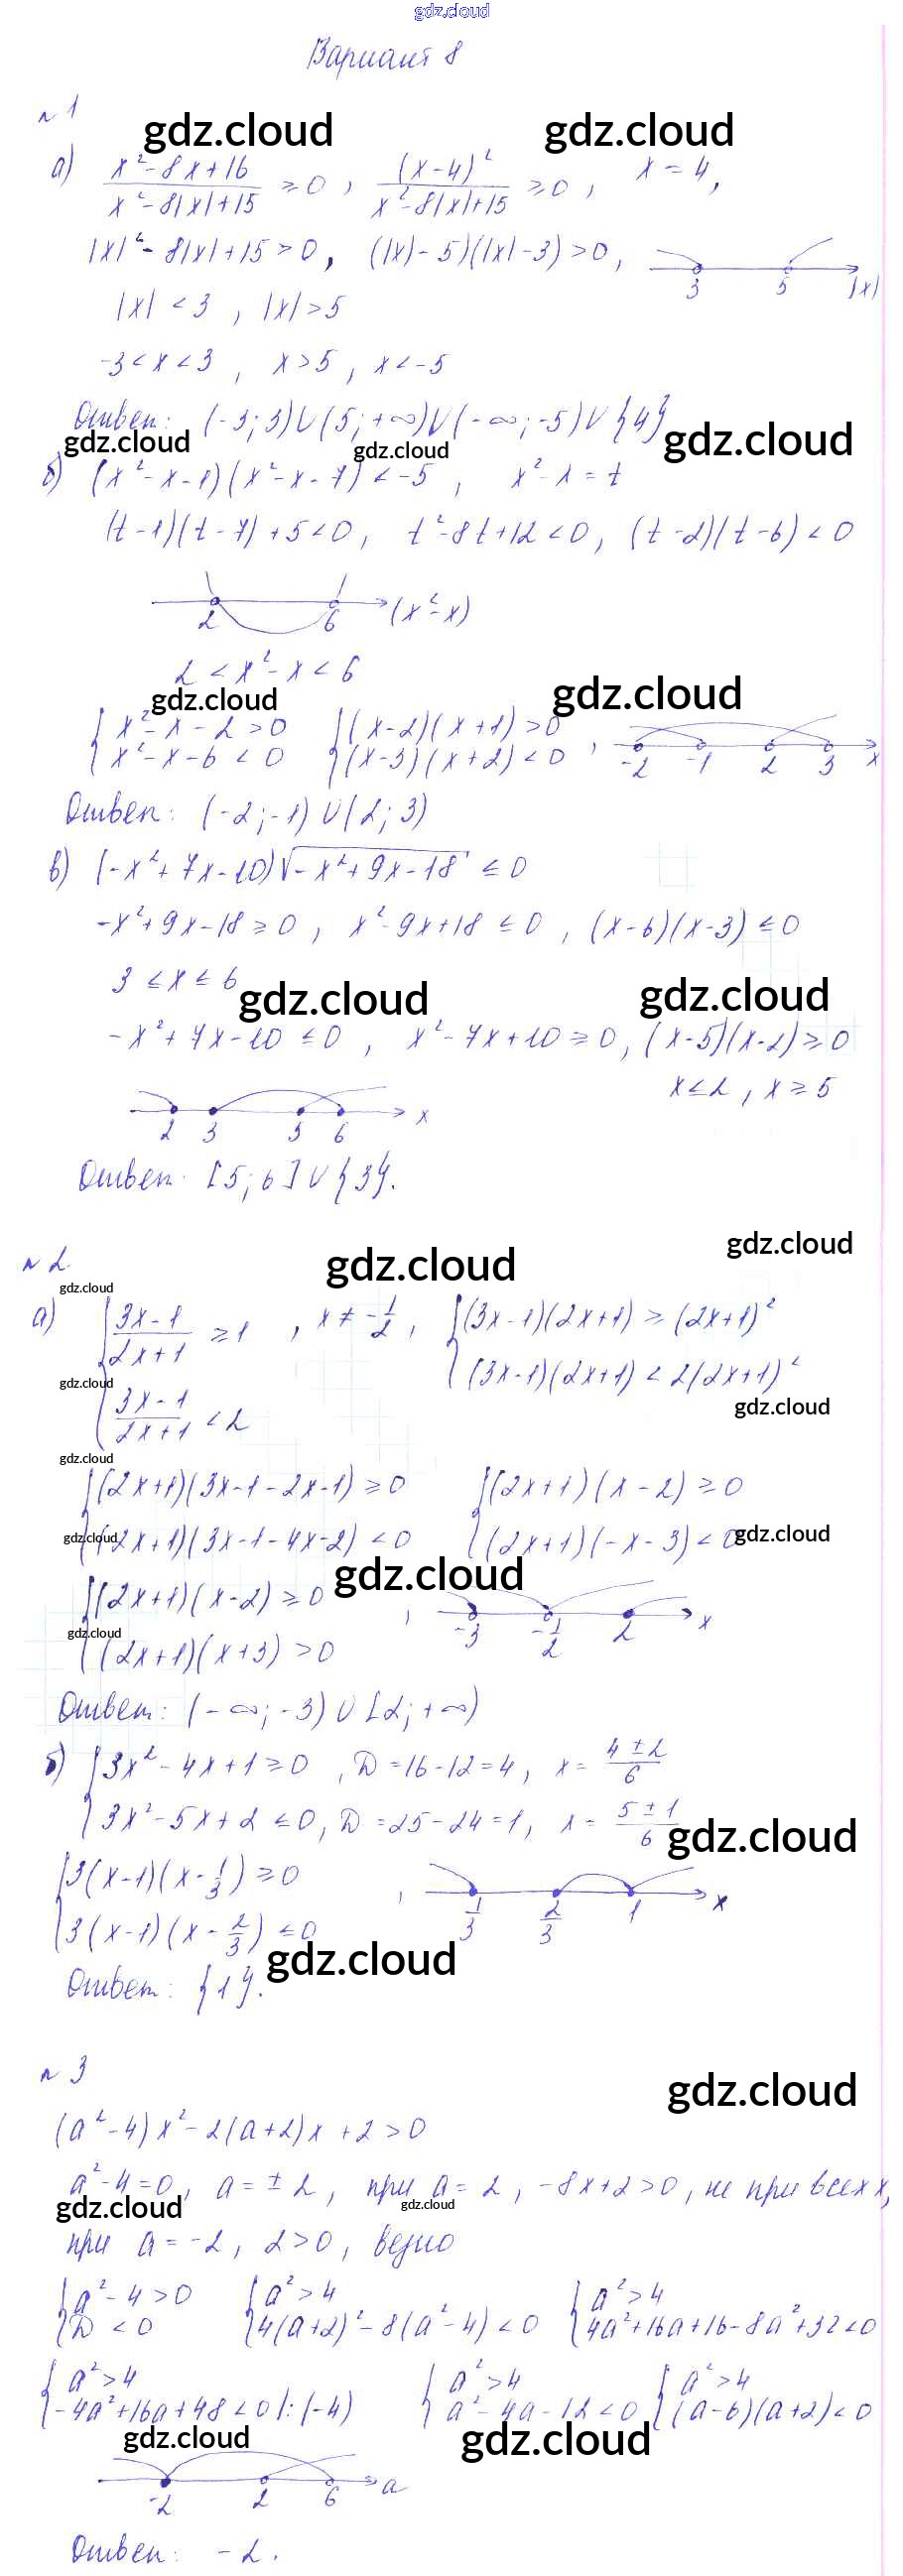 gdz.cloud
Вариант 8
n 1
gdz.cloud gdz.cloud
а) (x²-8x+16)/(x²-8|x|+15) ≥ 0, (x-4)²/(x²-8|x|+15) ≥ 0, x = 4,
|x|²-8|x|+15 > 0, (|x|-5)(|x|-3) > 0,
3 5 |x|
|x| < 3, |x| > 5
-3 < x < 3, x > 5, x < -5
Ответ: (-3; 3)∪(5; +∞)∪(-∞; -5)∪{4}
gdz.cloud gdz.cloud gdz.cloud
б) (x²-x-1)(x²-x-7) < -5, x²-x = t
(t-1)(t-7)+5 < 0, t²-8t+12 < 0, (t-2)(t-6) < 0
2 6 (x²-x)
2 < x²-x < 6
gdz.cloud gdz.cloud
{x²-x-2 > 0 {(x-2)(x+1) > 0
{x²-x-6 < 0 {(x-3)(x+2) < 0,
-2 -1 2 3 x
Ответ: (-2; -1)∪(2; 3)
в) (-x²+7x-10)√(-x²+9x-18) ≤ 0
-x²+9x-18 ≥ 0, x²-9x+18 ≤ 0, (x-6)(x-3) ≤ 0
3 ≤ x ≤ 6
gdz.cloud gdz.cloud
-x²+7x-10 ≤ 0, x²-7x+10 ≥ 0, (x-5)(x-2) ≥ 0
x ≤ 2, x ≥ 5
2 3 5 6 x
Ответ: [5; 6]∪{3}.
gdz.cloud
n 2
gdz.cloud
gdz.cloud
а) {(3x-1)/(2x+1) ≥ 1, x ≠ -1/2, {(3x-1)(2x+1) ≥ (2x+1)²
gdz.cloud
{(3x-1)/(2x+1) < 2 {(3x-1)(2x+1) < 2(2x+1)²
gdz.cloud
gdz.cloud
{(2x+1)(3x-1-2x-1) ≥ 0 {(2x+1)(x-2) ≥ 0
{(2x+1)(3x-1-4x-2) < 0 {(2x+1)(-x-3) < 0
gdz.cloud gdz.cloud
gdz.cloud
{(2x+1)(x-2) ≥ 0
{(2x+1)(x+3) > 0,
-3 -1/2 2 x
gdz.cloud
Ответ: (-∞; -3)∪[2; +∞)
б) {3x²-4x+1 ≥ 0, D = 16-12 = 4, x = (4±2)/6
{3x²-5x+2 ≤ 0, D = 25-24 = 1, x = (5±1)/6
gdz.cloud
{3(x-1)(x-1/3) ≥ 0
{3(x-1)(x-2/3) ≤ 0,
1/3 2/3 1 x
gdz.cloud
Ответ: {1}.
n 3
gdz.cloud
(a²-4)x²-2(a+2)x+2 > 0
a²-4 = 0, a = ±2, при a = 2, -8x+2 > 0, не при всех x,
gdz.cloud gdz.cloud
при a = -2, 2 > 0, верно
{a²-4 > 0 {a² > 4 {a² > 4
{D < 0 {4(a+2)²-8(a²-4) < 0 {4a²+16a+16-8a²+32 < 0
{a² > 4 {a² > 4 {a² > 4
{-4a²+16a+48 < 0 |:(-4) {a²-4a-12 < 0 {(a-6)(a+2) < 0
gdz.cloud gdz.cloud
-2 2 6 a
Ответ: -2.